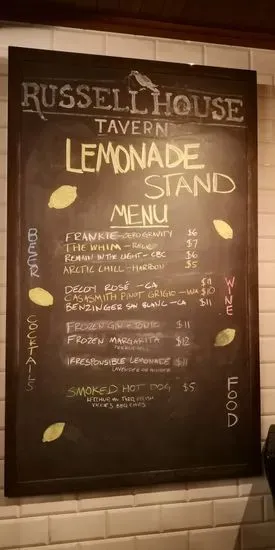 RUSSELL HOUSE
TAVERN
LEMONADE
STAND
MENU
BEER
FRANKIE - ZERO GRAVITY $6
THE WHIM - $7
REMAIN IN THE LIGHT - CBC $6
ARCTIC CHILL - HARPOON $5
WINE
DELOY ROSÉ - CA $11
CASASMITH PINOT GRIGIO - WA $10
BENZINGER SAV BLANC - CA $11
COCKTAILS
FROZEN GIN + TONIC $11
FROZEN MARGARITA $12
IRRESPONSIBLE LEMONADE $11
LAVENDER OR GINGER
FOOD
SMOKED HOT DOG $5
KETCHUP, RELISH
BBQ CHIPS